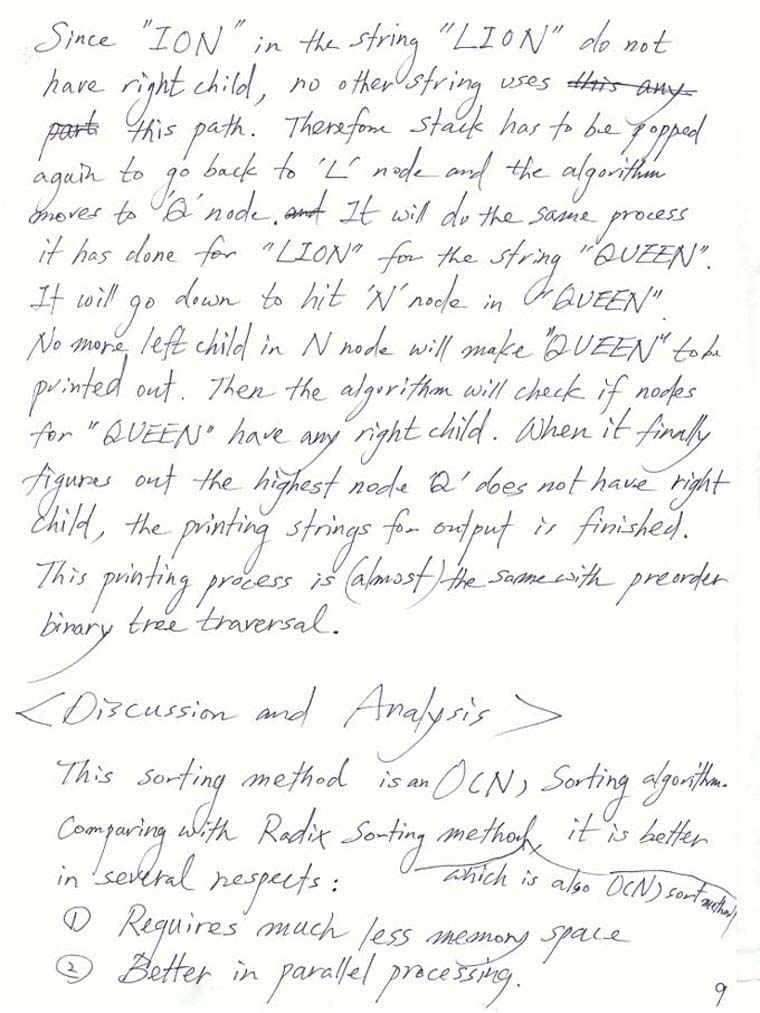 Since "ION" in the string "LION" do not
have right child, no other string uses this any
part this path. Therefore stack has to be popped
again to go back to 'L' node and the algorithm
moves to 'Q' node. and It will do the same process
it has done for "LION" for the string "QUEEN".
It will go down to hit 'N' node in "QUEEN".
No more left child in N node will make "QUEEN" to be
printed out. Then the algorithm will check if nodes
for "QUEEN" have any right child. When it finally
figures out the highest node 'Q' does not have right
child, the printing strings for output is finished.
This printing process is (almost) the same with preorder
binary tree traversal.
<Discussion and Analysis>
This sorting method is an O(N) Sorting algorithm.
Comparing with Radix Sorting method, it is better
which is also O(N) sort method
in several respects:
① Requires much less memory space
② Better in parallel processing.
9